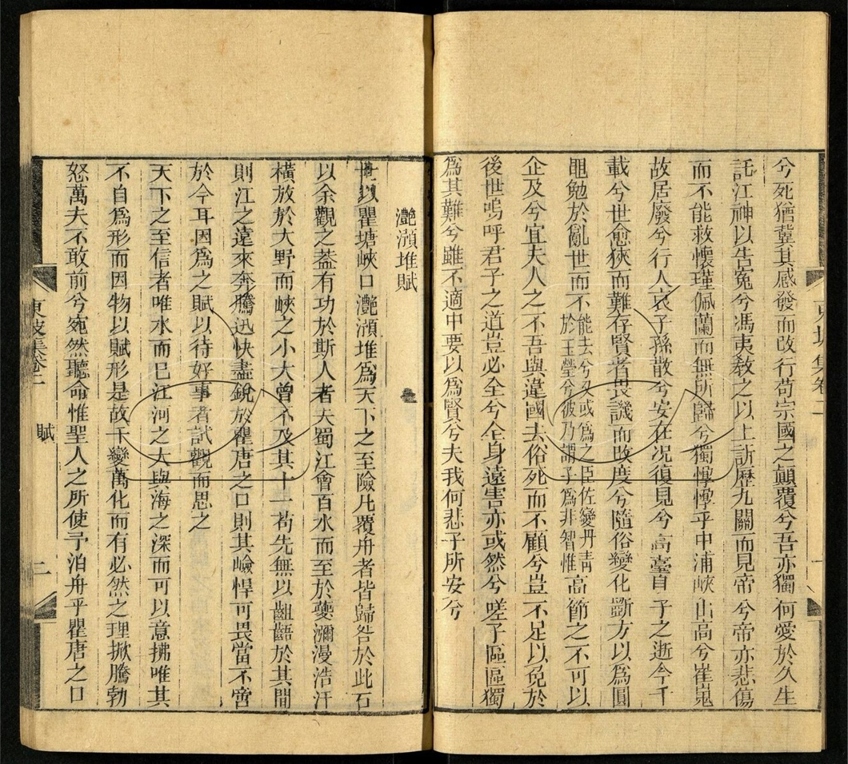 兮死猶冀其感發而改行苟宗國之顛覆兮吾亦獨何愛於久生
託江神以告冤兮馮夷教之以上訴歷九關而見帝兮帝亦悲傷
而不能救懷瑾佩蘭而無所歸兮獨惸惸乎中浦峽山高兮崔嵬
故居廢兮行人哀子孫散兮安在況復見兮高臺自子之逝今千
載兮世愈狹而難存賢者畏譏而改度兮隨俗變化斲方以為圓
黽勉於亂世而不能去兮又或為之臣佐變丹青於玉瑩兮彼乃謂子為非智惟高節之不可以
企及兮宜夫人之不吾與違國去俗死而不顧兮豈不足以免於
後世嗚呼君子之道豈必全兮全身遠害亦或然兮嗟子區區獨
為其難兮雖不適中要以為賢兮夫我何悲子所安兮
灔澦堆賦
世以瞿塘峽口灔澦堆為天下之至險凡覆舟者皆歸咎於此石
以余觀之葢有功於斯人者夫蜀江會百水而至於夔瀰漫浩汗
橫放於大野而峽之小大曾不及其十一茍先無以齟齬於其間
則江之遠來奔騰迅快盡銳於瞿唐之口則其嶮悍可畏當不啻
於今耳因為之賦以待好事者試觀而思之
天下之至信者唯水而已江河之大與海之深而可以意揣唯其
不自為形而因物以賦形是故千變萬化而有必然之理掀騰勃
怒萬夫不敢前兮宛然聽命惟聖人之所使予泊舟乎瞿唐之口
東坡集卷二
賦
二